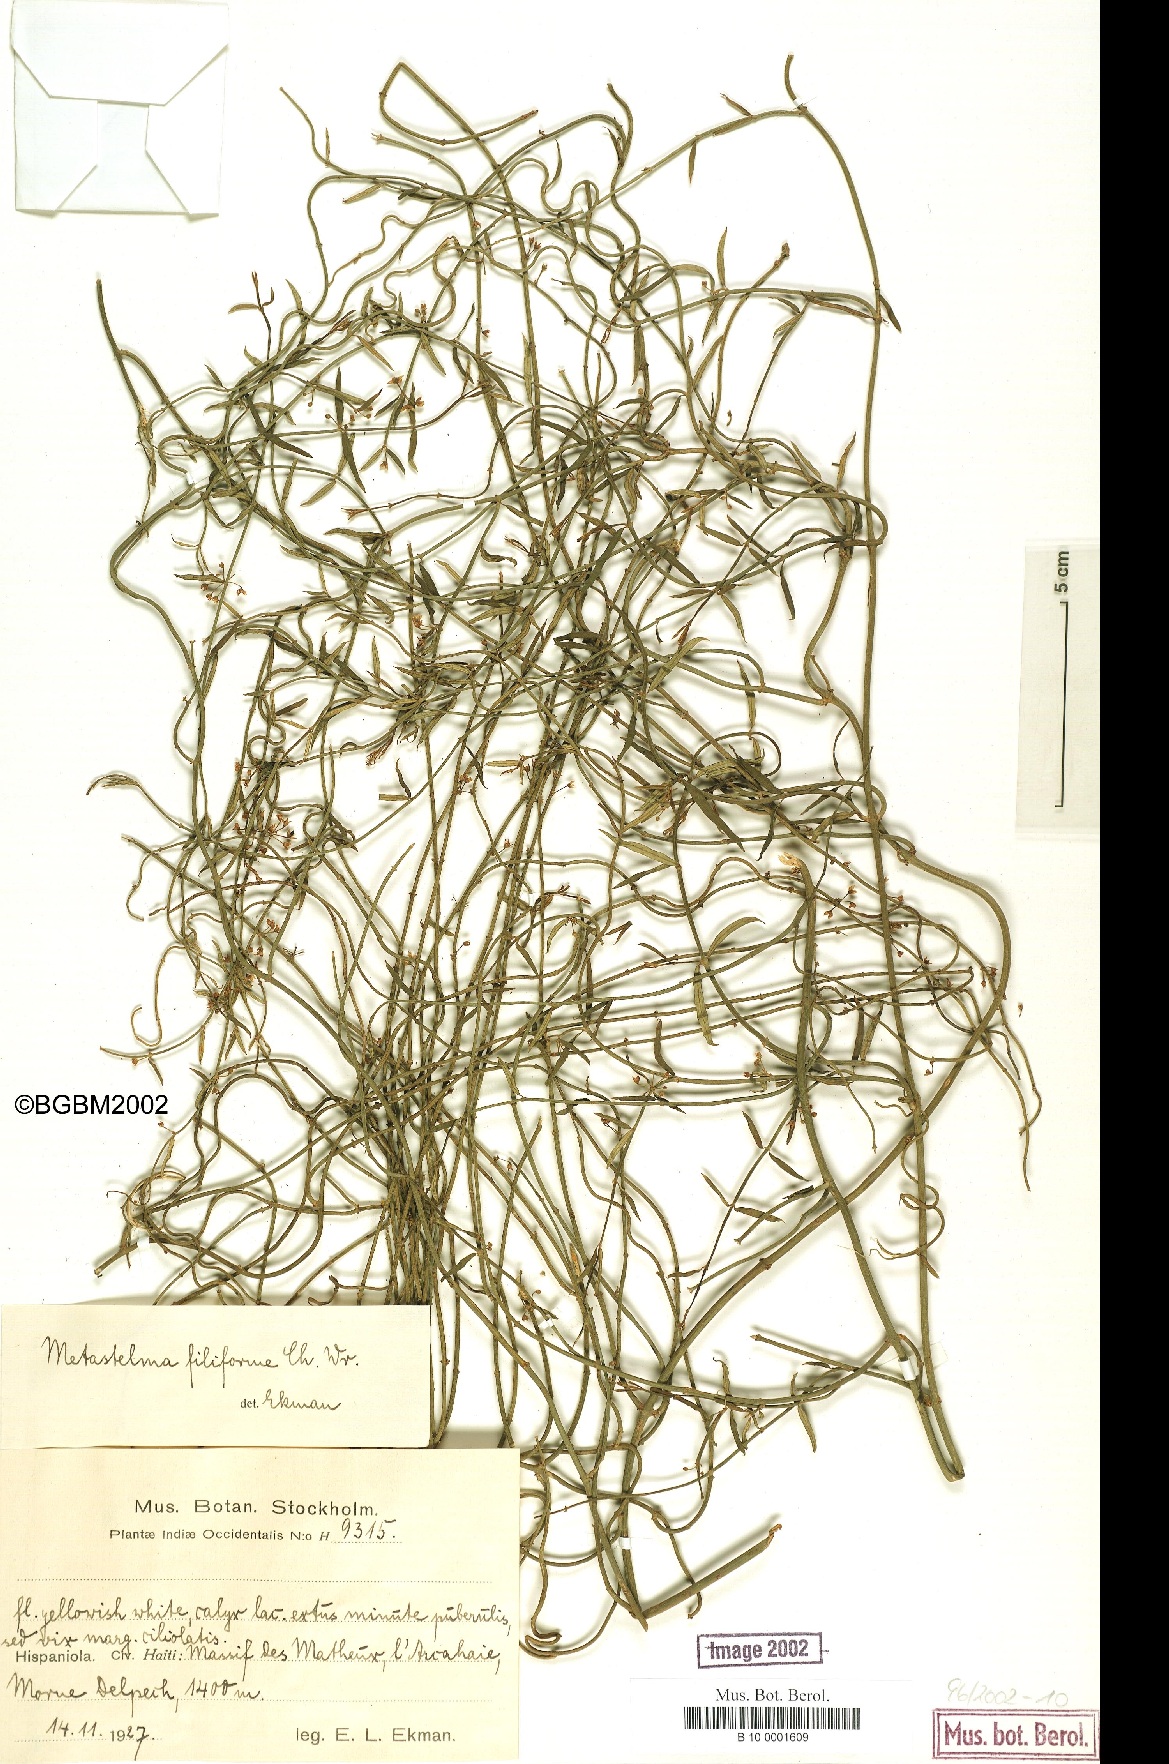 ©BGBM2002
5 cm
Metastelma filiforme Ch. Wr.
det. Ekman
Mus. Botan. Stockholm.
Plantæ Indiæ Occidentalis N:o H 9315.
fl. yellowish white, calyx lac. extus minute puberulis,
sed vix marg. ciliolatis.
Hispaniola. Civ. Haiti: Massif des Matheux, l'Arcahaie,
Morne Delpech, 1400 m.
14.11. 1927.
leg. E. L. Ekman.
Image 2002
Mus. Bot. Berol.
B 10 0001609
96/2002-10
Mus. bot. Berol.